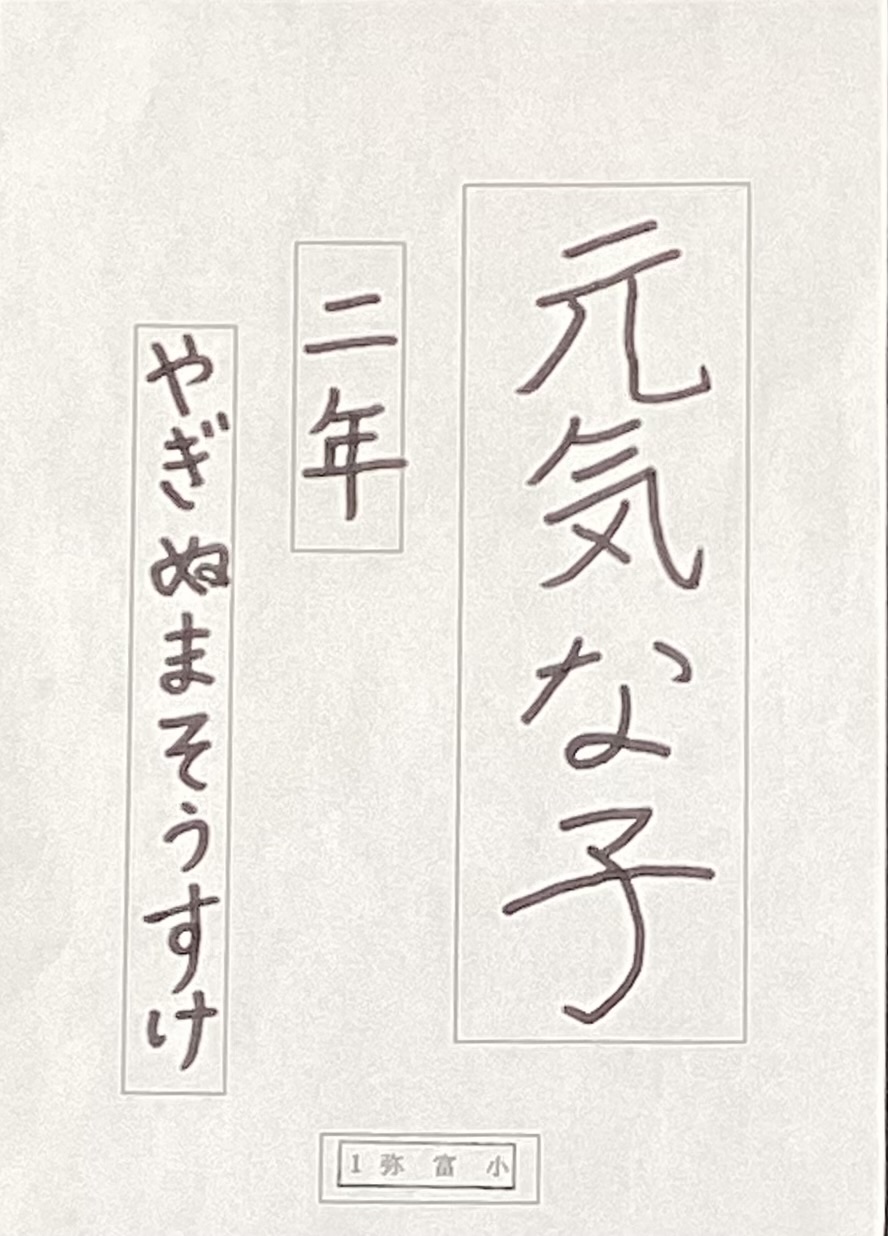 元気な子
二年
やぎぬまそうすけ
1 弥富小